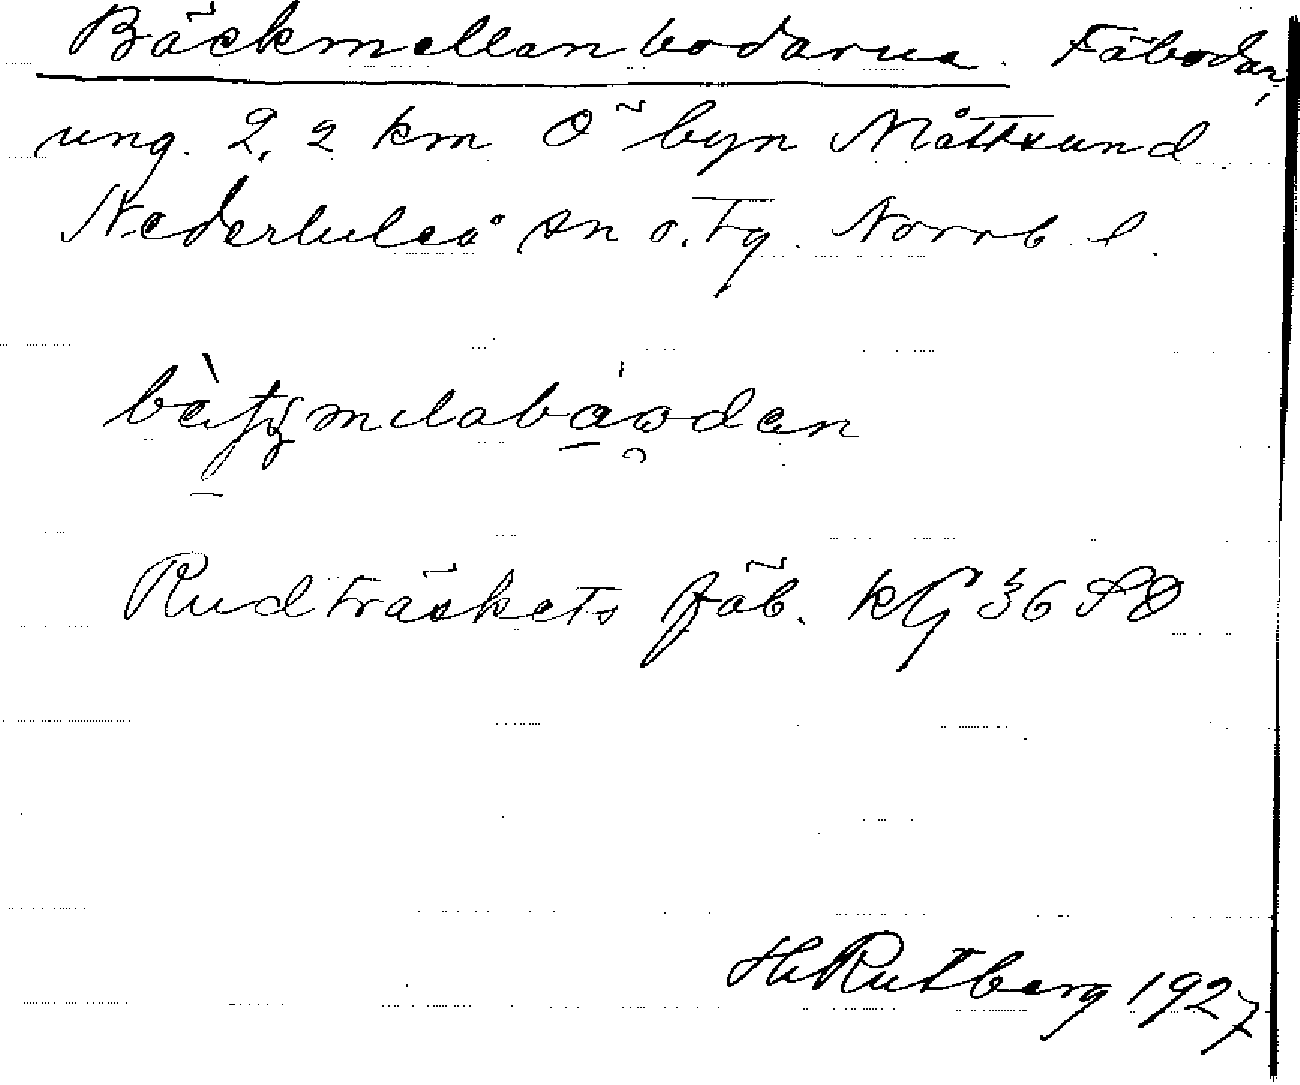 Bäckmellanbodarna. Fäbodar,
ung. 2,2 km Ö byn Måttsund
Nederluleå sn o. tg. Norrb. l.
Rudträskets fäb. KG 36 SO
H. Rutberg 1927